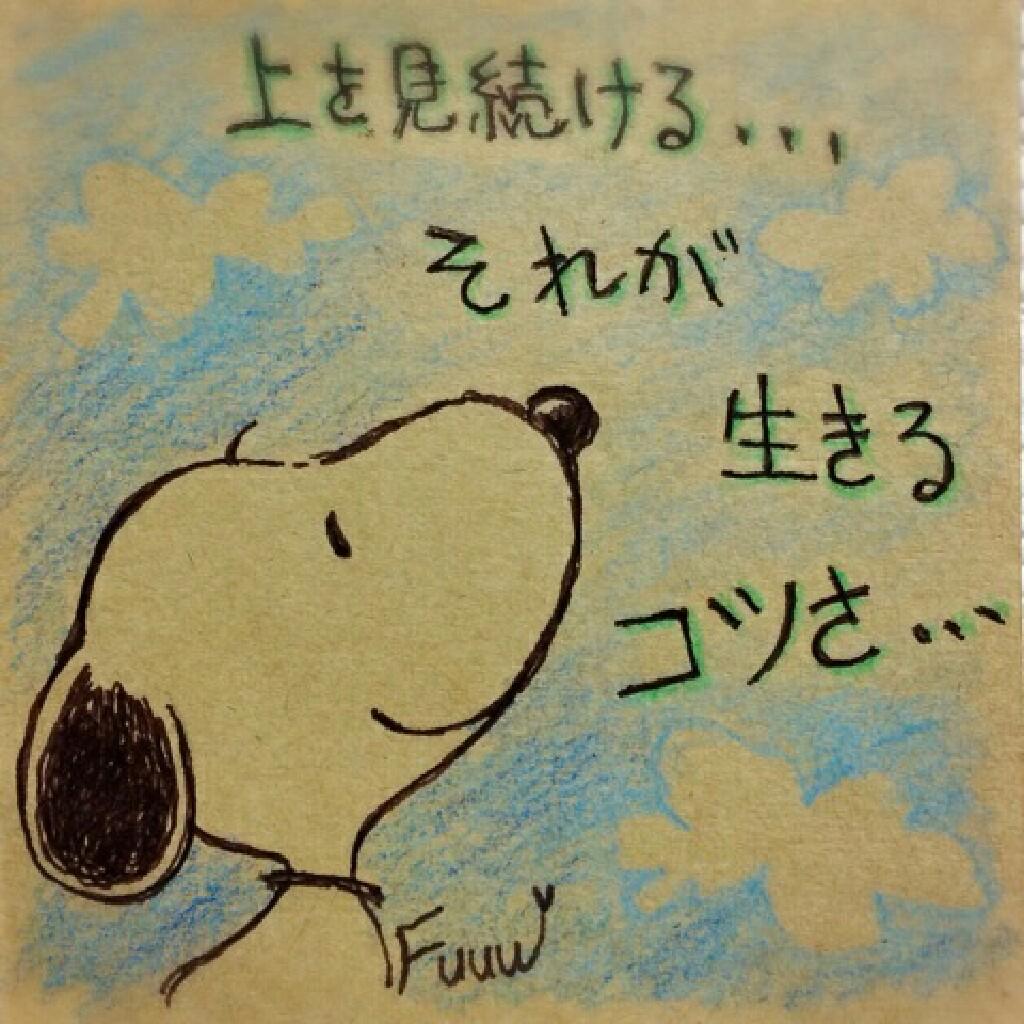 上を見続ける...
それが
生きる
コツさ...
Fuuu